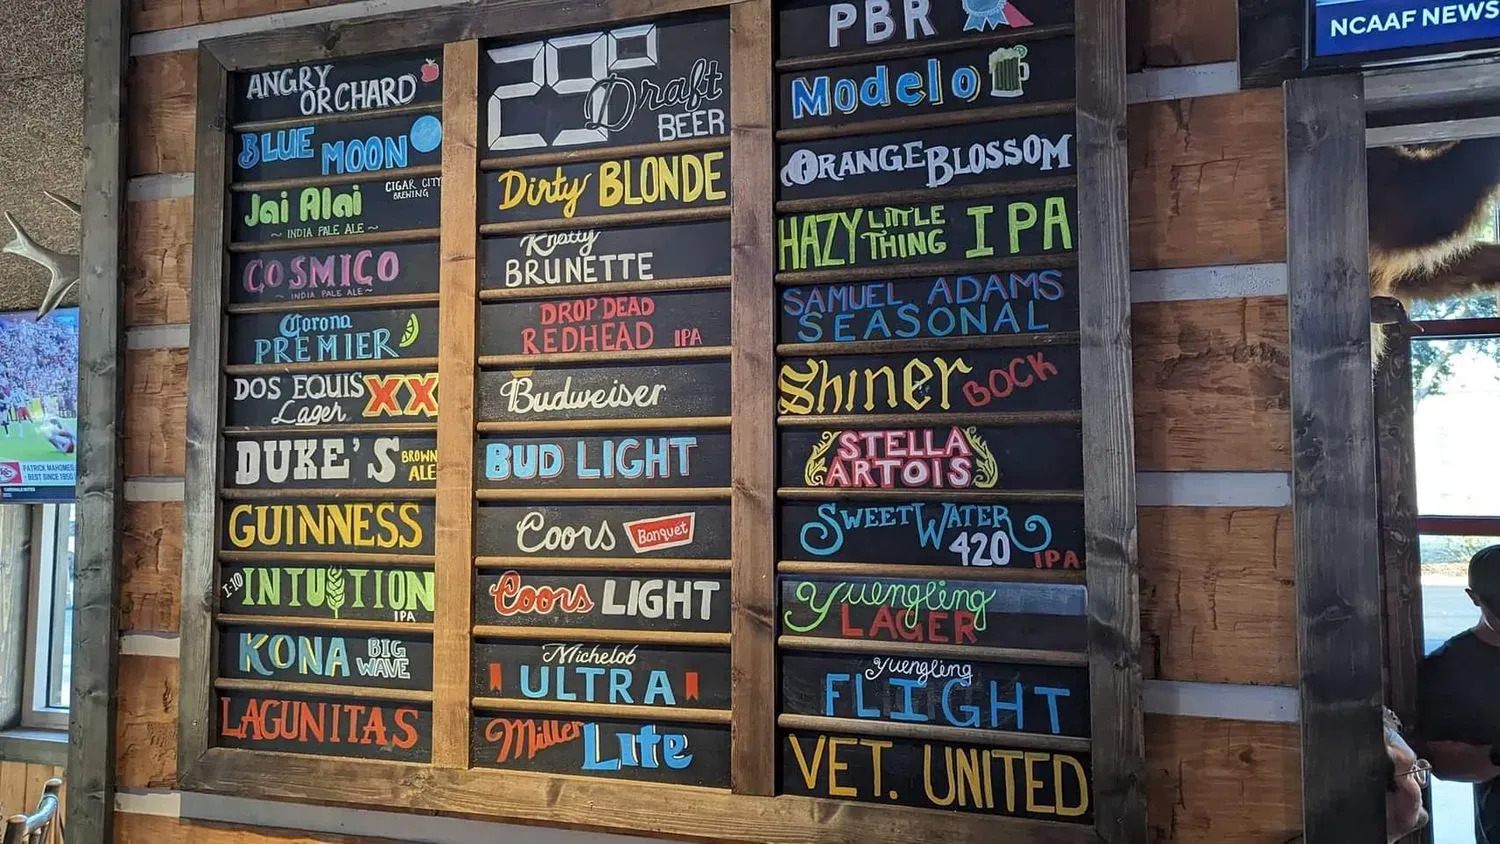 ANGRY
ORCHARD
BLUE MOON
Jai Alai
CIGAR CITY
BREWING
~ INDIA PALE ALE ~
COSMICO
~ INDIA PALE ALE ~
Corona
PREMIER
DOS EQUIS
Lager
XX
DUKE'S
BROWN
ALE
GUINNESS
I-10
INTUITION
IPA
KONA
BIG
WAVE
LAGUNITAS
29°
Draft
BEER
Dirty BLONDE
Knotty
BRUNETTE
DROP DEAD
REDHEAD IPA
Budweiser
BUD LIGHT
Coors Banquet
Coors LIGHT
Michelob
ULTRA
Miller Lite
PBR
Modelo
ORANGE BLOSSOM
HAZY LITTLE
THING IPA
SAMUEL ADAMS
SEASONAL
Shiner BOCK
STELLA
ARTOIS
SWEETWATER
420 IPA
Yuengling
LAGER
Yuengling
FLIGHT
VET. UNITED
NCAAF NEWS
PATRICK MAHOMES